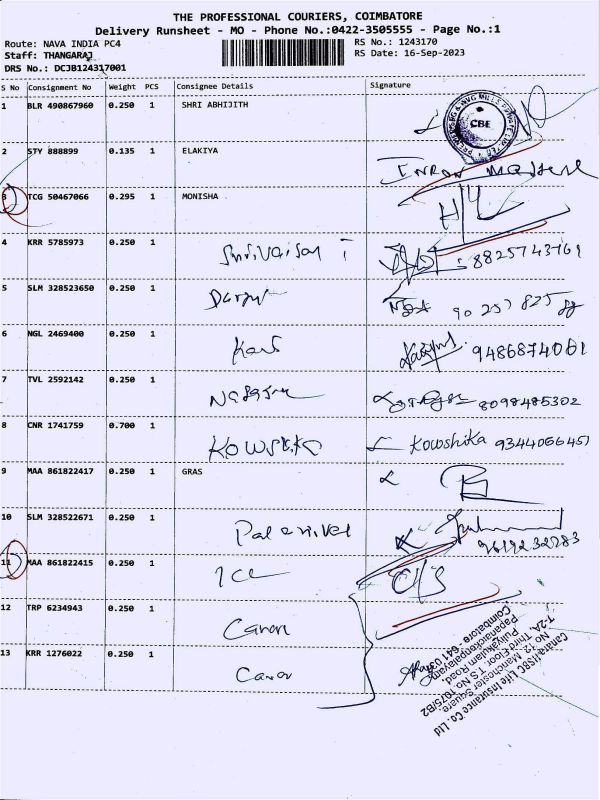 THE PROFESSIONAL COURIERS, COIMBATORE
Delivery Runsheet - MO - Phone No.:0422-3505555 - Page No.:1
Route: NAVA INDIA PC4
RS No.: 1243170
Staff: THANGARAJ
RS Date: 16-Sep-2023
DRS No.: DCJB124317001
S No Consignment No Weight PCS Consignee Details Signature
1 BLR 490867960 0.250 1 SHRI ABHIJITH
CBE
2 STY 888899 0.135 1 ELAKIYA
3 TCG 50467066 0.295 1 MONISHA
4 KRR 5785973 0.250 1 8825743761
5 SLM 328523650 0.250 1
6 NGL 2469400 0.250 1 9486874061
7 TVL 2592142 0.250 1 8098485302
8 CNR 1741759 0.700 1 Kowshika 9344066457
9 MAA 861822417 0.250 1 GRAS
10 SLM 328522671 0.250 1 Palanivel
11 MAA 861822415 0.250 1 ICL
12 TRP 6234943 0.250 1 Canara
13 KRR 1276022 0.250 1 Canar
Canara HSBC Life Insurance Co. Ltd
No 12, Manchester Square
T-2A, Third Floor, T S No. 1075/B2
Puliyakulam Road
Papanaickenpalayam
Coimbatore - 641 037